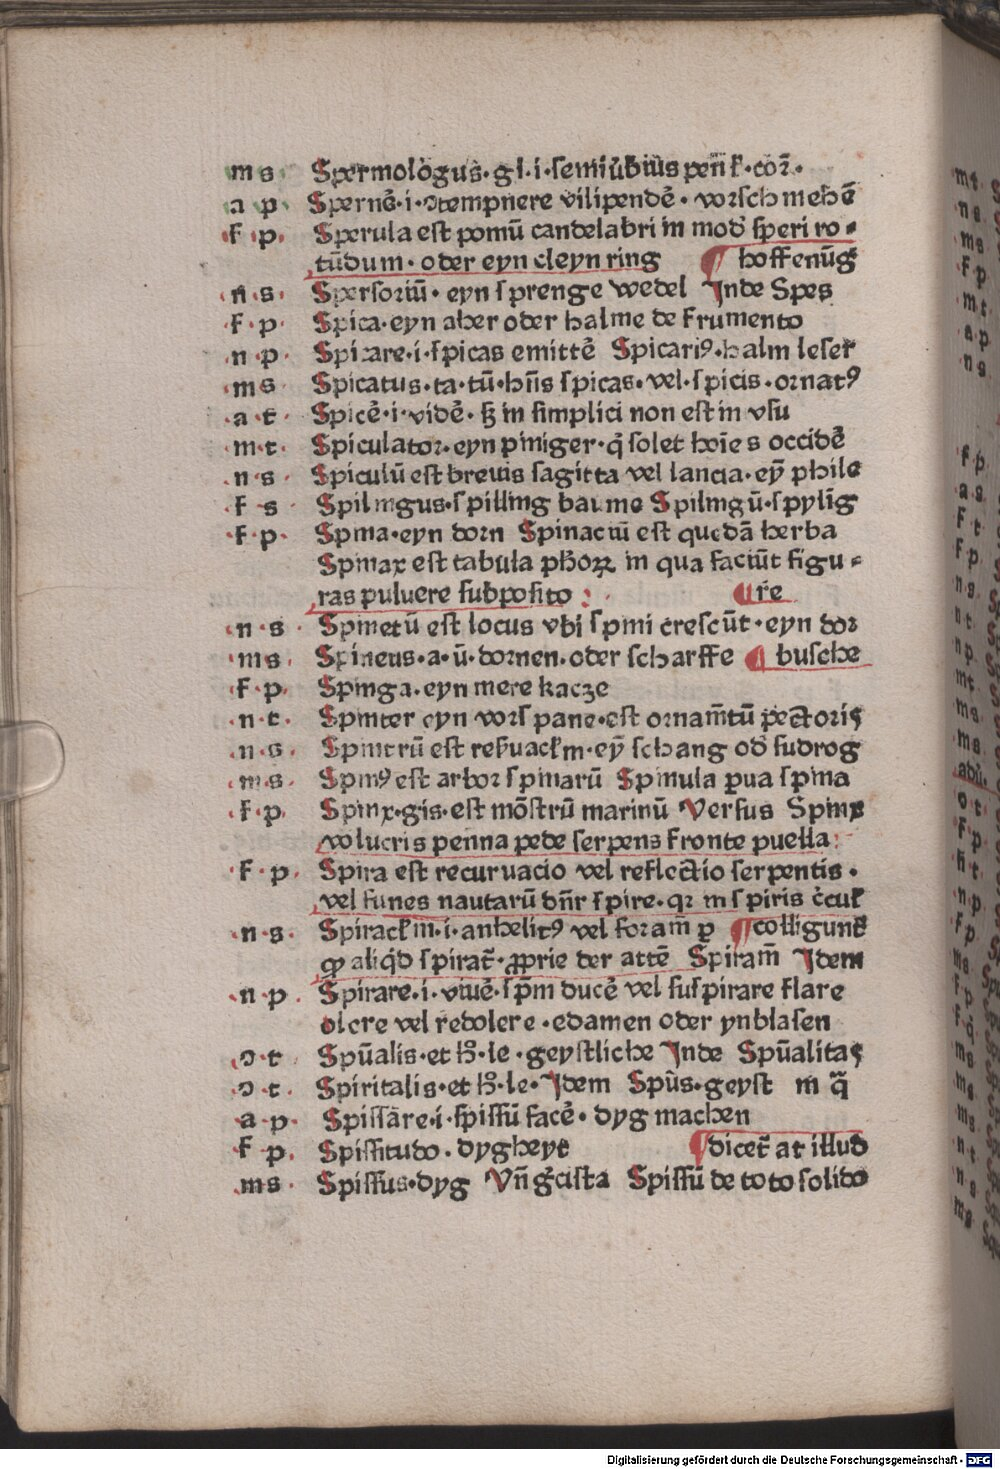 m s Spermologus·gl·i·semiūbiūs
a p· Spernē·i·ↄtempnere vilipendē·vorschmehē
f·p· Sperula est pomū candelabri in mod̄ speri ro-
tūdum·oder eyn cleyn ring ¶ hoffenūg
n·s· Spersoriū·eyn sprenge wedel Inde Spes
f·p· Spica·eyn aher oder halme de frumento
n p· Spicare·i·spicas emittē Spicariꝰ·halm leser
m s Spicatus·ta·tū·hn̄s spicas·vel·spicis·ornatꝰ
a·t· Spicē·i·vidē·ß in simplici non est in vsu
m·t· Spiculator·eyn piniger·q̄ solet hoīes occidē
n·s· Spiculū est breuis sagitta vel lancia·ey̅ phile
f s· Spilingus·spilling baume Spilingū·spylīg
f·p· Spina·eyn dorn Spinaciū est quedā herba
Spinax est tabula ph̄oꝝ in qua faciūt figu-
ras puluere subposito: ¶ re
n·s Spinetū est locus vbi spini crescūt·eyn dor
m s· Spineus·a·ū·dornen·oder scharffe ¶ busche
f·p· Spinga·eyn mere kacze
n·t· Spinter eyn vorspane·est ornam̄tū pectoris
n·s· Spintrū est ey̅ schang od̄ sudrog
m·s· Spinꝰ est arbor spinarū Spinula pua spina
f·p· Spinx·gis·est mōstrū marinū Versus Spinx
volucris penna pede serpens fronte puella:
f·p· Spira est recuruacio vel reflectio serpentis·
vel funes nautarū dn̄r spire·qr in spiris
n·s· i·anhelitꝰ vel foram̄ p ¶ colligunt
aliq̄d spirat̄·ꝓprie der attē Spiram̄ Idem
n·p· Spirare·i·viuē·sp̄m ducē vel suspirare flare
olere vel redolere·edamen oder ynblasen
ↄ·t Spūalis·et h̄·le·geystliche Inde Spūalitas
ↄ·t· Spiritalis·et h̄·le·Idem Spūs·geyst in q̄
a·p· Spissare·i·spissū facē·dyg machen
f p· Spissitudo·dygheyt ¶ dicet̄ at illud
ms· Spissus·dyg Vn̄ Spissū de toto solido
m t·
n s·
m s
f p
m t·
a p
n s·
f p·
a s
f t
f p·
n s·
n t
n p·
m t
m s·
m s
adū·
o t
f p
n p
f p
Digitalisierung gefördert durch die Deutsche Forschungsgemeinschaft - DFG